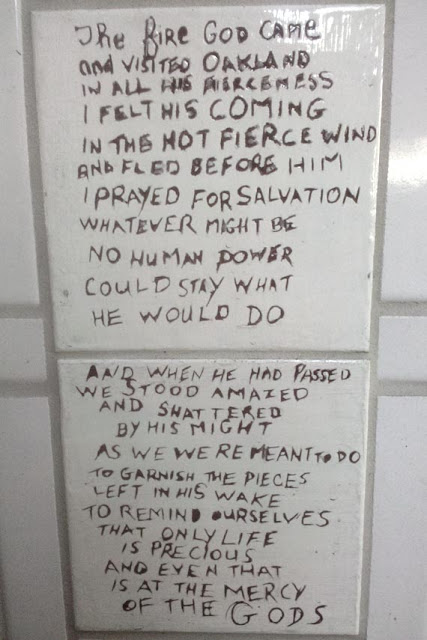 The FiRE GOD CAME
and VISITED OAKLAND
IN ALL HIS FIERCENESS
I FELT HIS COMING
IN THE HOT FIERCE WIND
AND FLED BEFORE HIM
I PRAYED FOR SALVATION
WHATEVER MIGHT BE
NO HUMAN POWER
COULD STAY WHAT
HE WOULD DO
AND WHEN HE HAD PASSED
WE STOOD AMAZED
AND SHATTERED
BY HIS MIGHT
AS WE WERE MEANT to DO
TO GARNISH THE PIECES
LEFT IN HIS WAKE
TO REMIND OURSELVES
THAT ONLY LIFE
IS PRECIOUS
AND EVEN THAT
IS AT THE MERCY
OF THE GODS